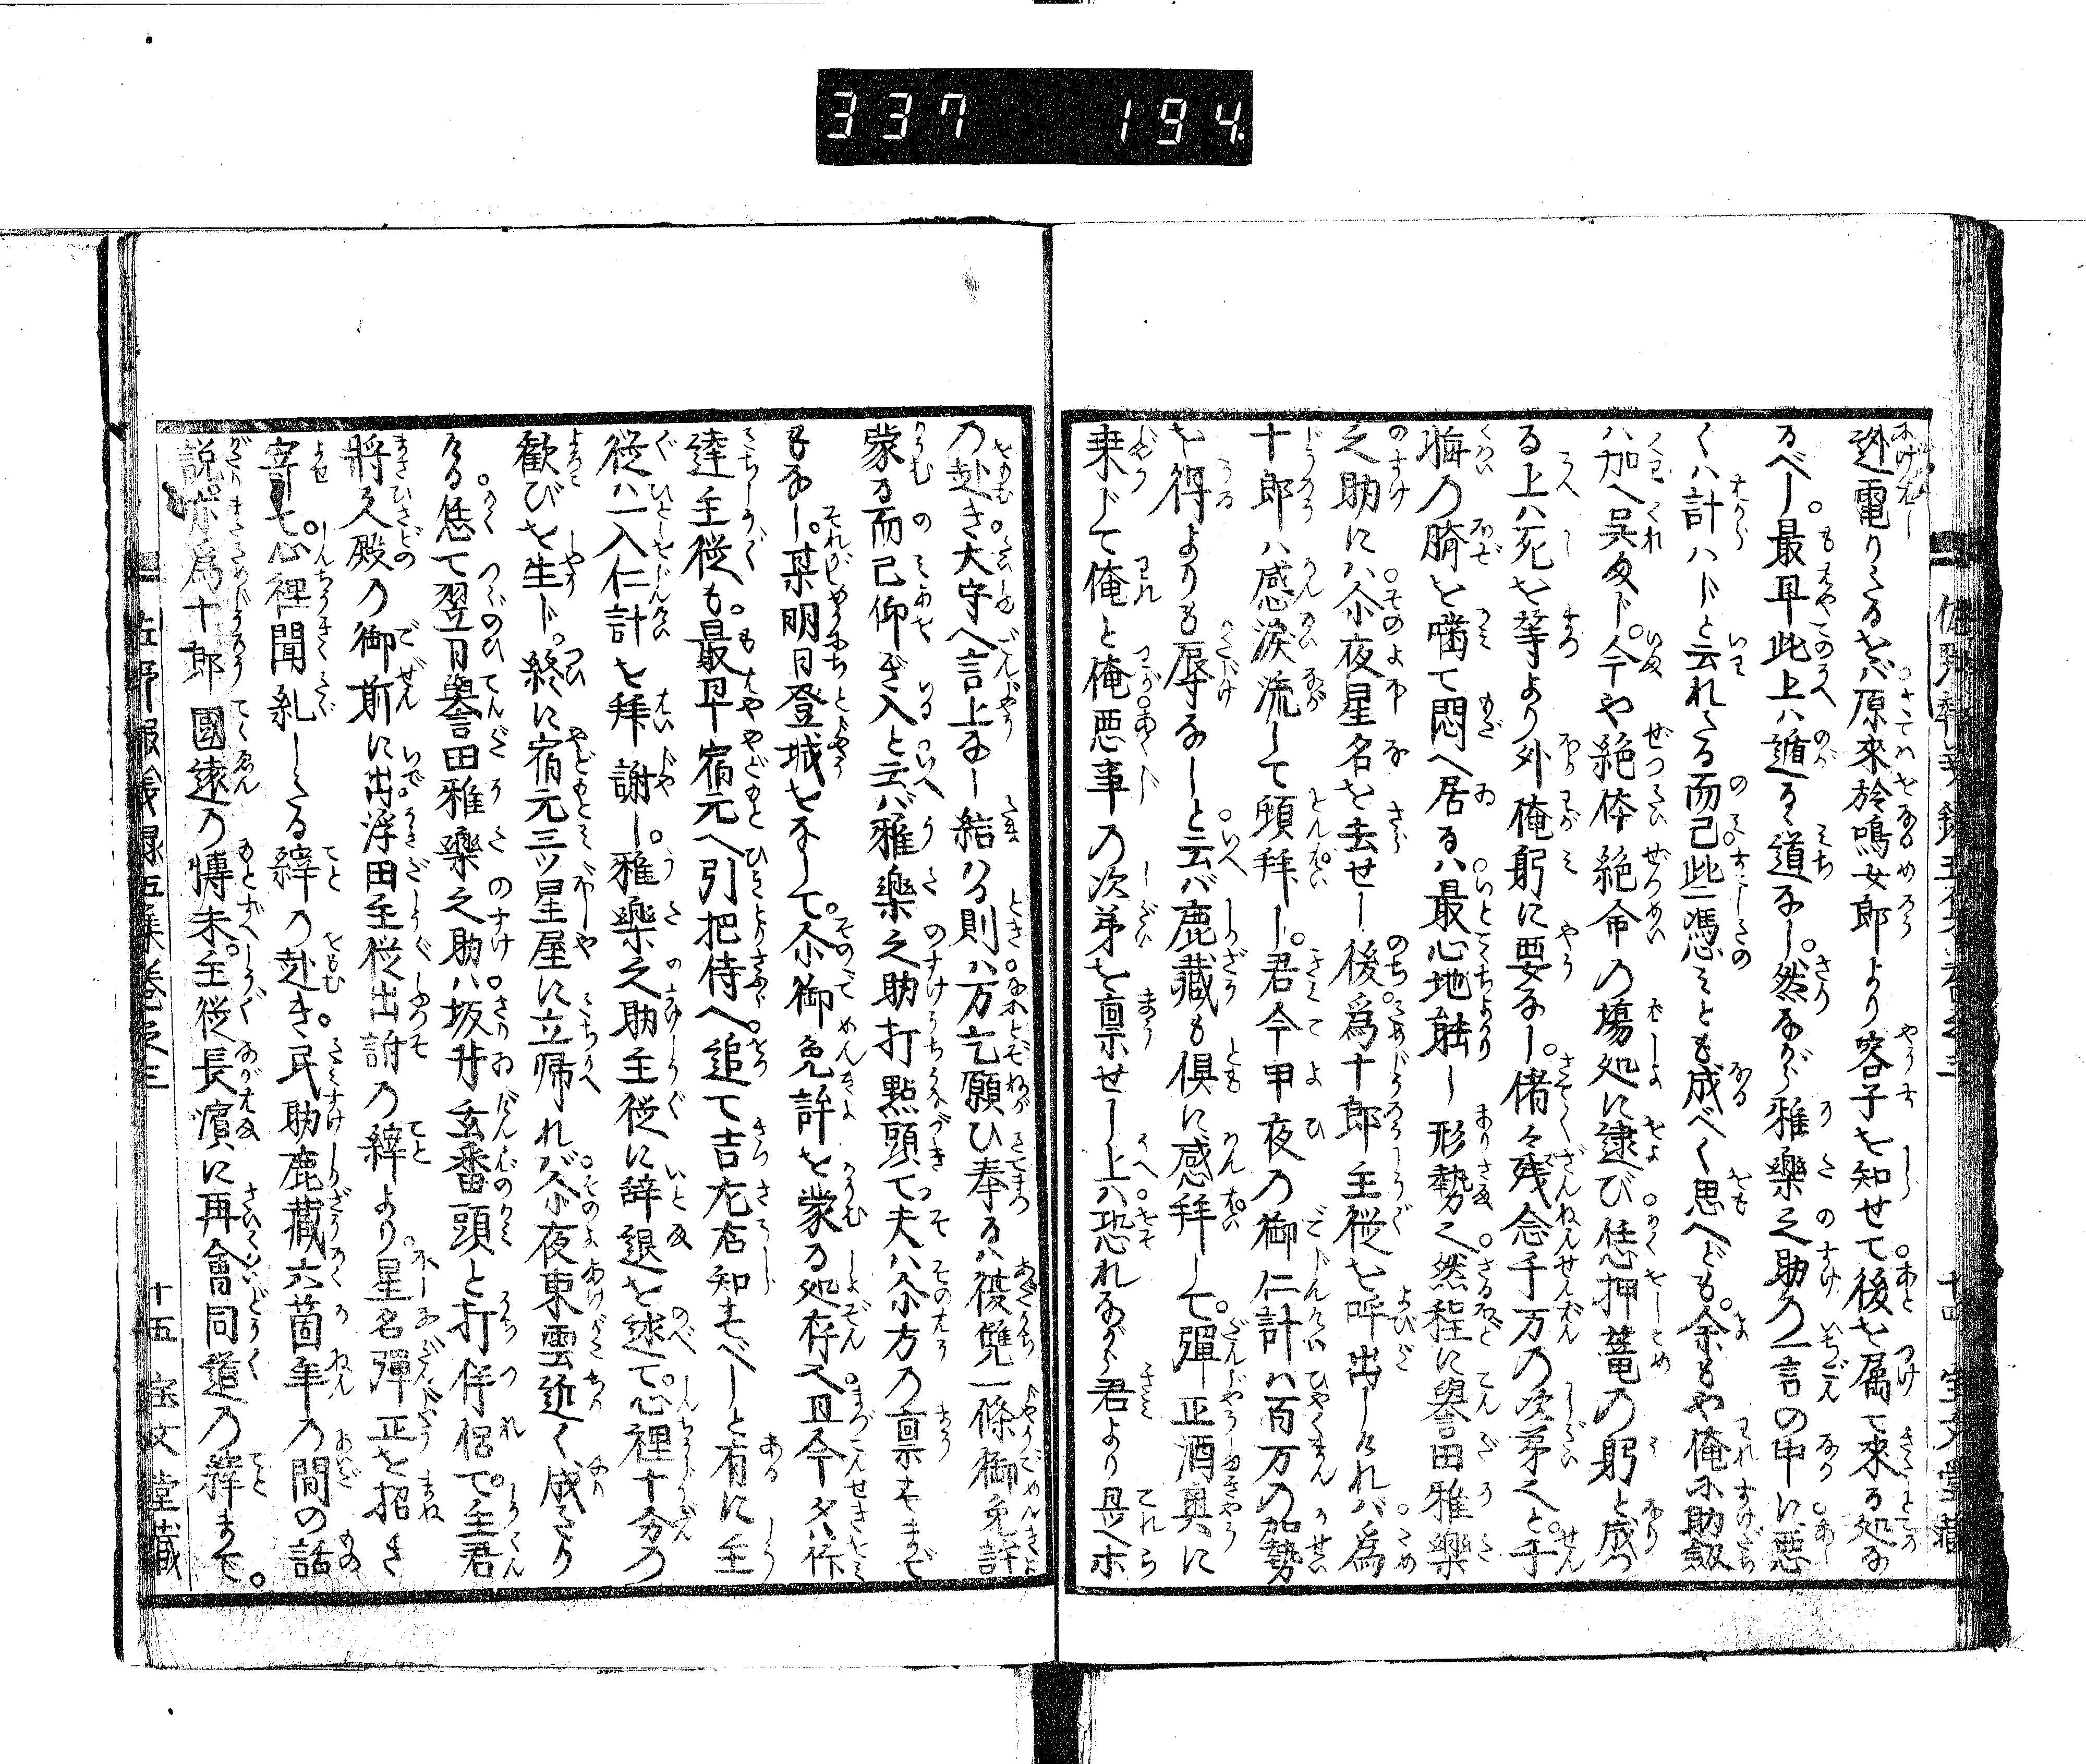 337 194
迯電りたるをバ原來於鳴女郎より容子を知せて後を属て來る処な
るべし。最早此上ハ遁るゝ道なし。然ながら雅樂之助の一言の中に悪
くハ計ハじと云れたる而已些憑ミとも成べく思へども。余もや俺に助釼
ハ加へ呉まじ。今や絶体絶命の場処に逮び恁押篭の躬と成つ
る上ハ死を等より外俺躬に要なし。偖々残念千万の次第と。手
悔の臍を噛て悶へ居るハ最心地能し形勢也。然程に譽田雅樂
之助にハ尒夜星名を去せし後。爲十郎主従を呼出しけれバ。爲
十郎ハ感涙流して頓拜し。君今甲夜の御仁計ハ百万の加勢
を得よりも辱なしと云バ鹿藏も倶に感拜して。彈正酒奥に
乗じて俺と俺悪事の次第を禀せし上ハ。恐れながら君より是ホ
の赴き。大守へ言上なし給ける則ハ。万乞願ひ奉るハ復讐一條御免許
蒙る而已仰ぎ入と云バ。雅樂之助打點頭て夫ハ尒方の禀すまで
もなし。某明日登城をなして。尒御免許を蒙る処存也。且今夕ハ仵
達主従も。最早宿元へ引把侍へ。追て吉左右知すべしと有に主
従ハ一入仁計を拜謝し。雅樂之助主従に辞退を述て。心裡十分の
歓びを生じ。終に宿元三ツ星屋に立帰れバ。尒夜東雲近く成たり
ける。恁て翌日譽田雅樂之助ハ。坂井玄番頭と打伴侶て。主君
將久殿の御前に出。浮田主従出訴の縡より。星名彈正を招き
寄て。心裡聞糺したる縡の赴き。民助鹿藏六箇年の間の話
説。尓爲十郎國遠の愽末。主従長濵に再會同道の縡まで。
十五 宝文堂藏